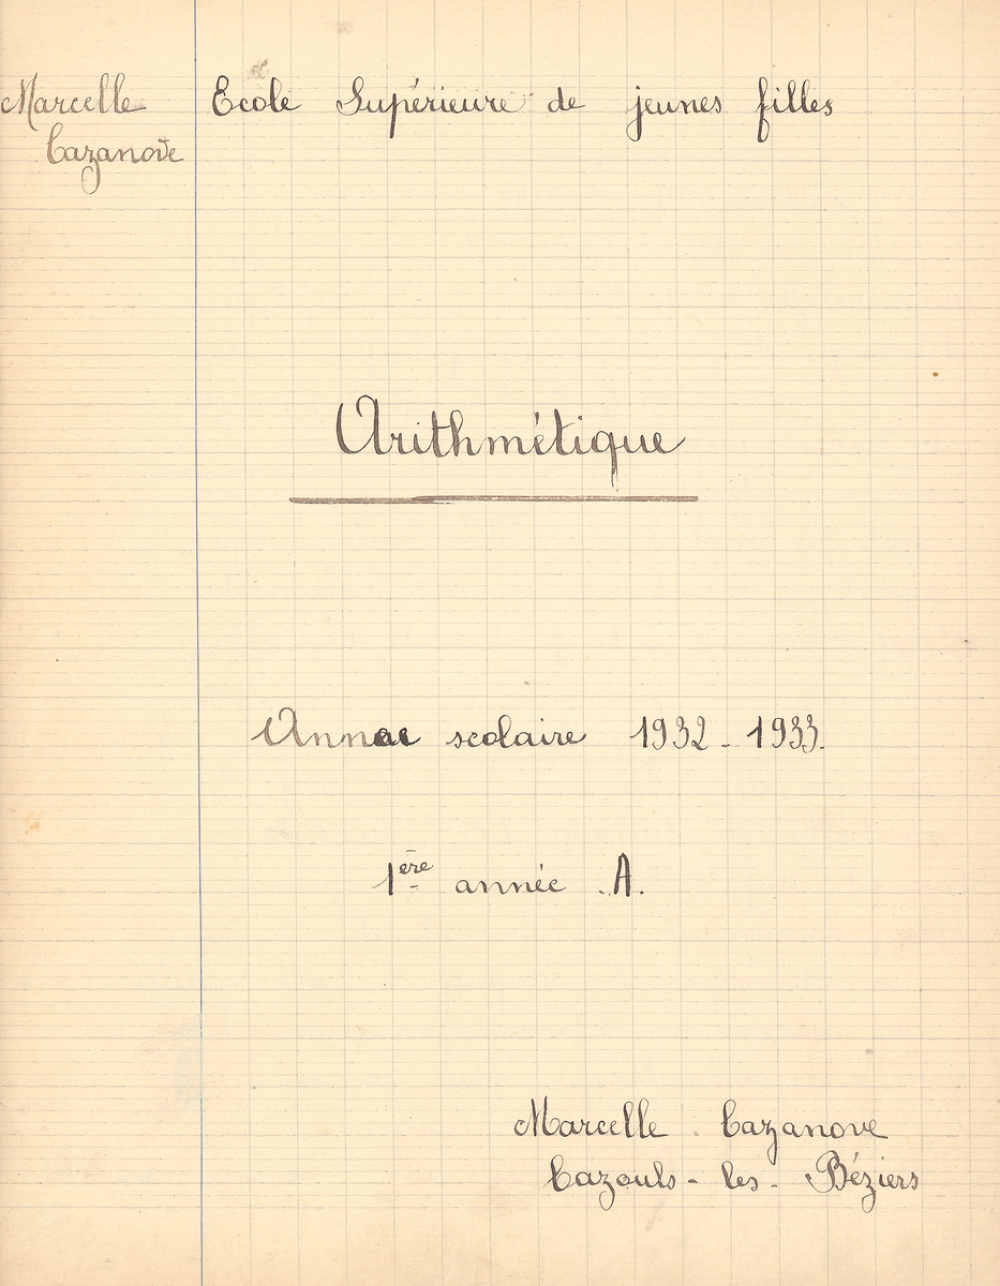 Marcelle
Cazanove
Ecole Supérieure de jeunes filles
Arithmétique
Année scolaire 1932-1933.
1ère année A.
Marcelle Cazanove
Cazouls-les-Béziers